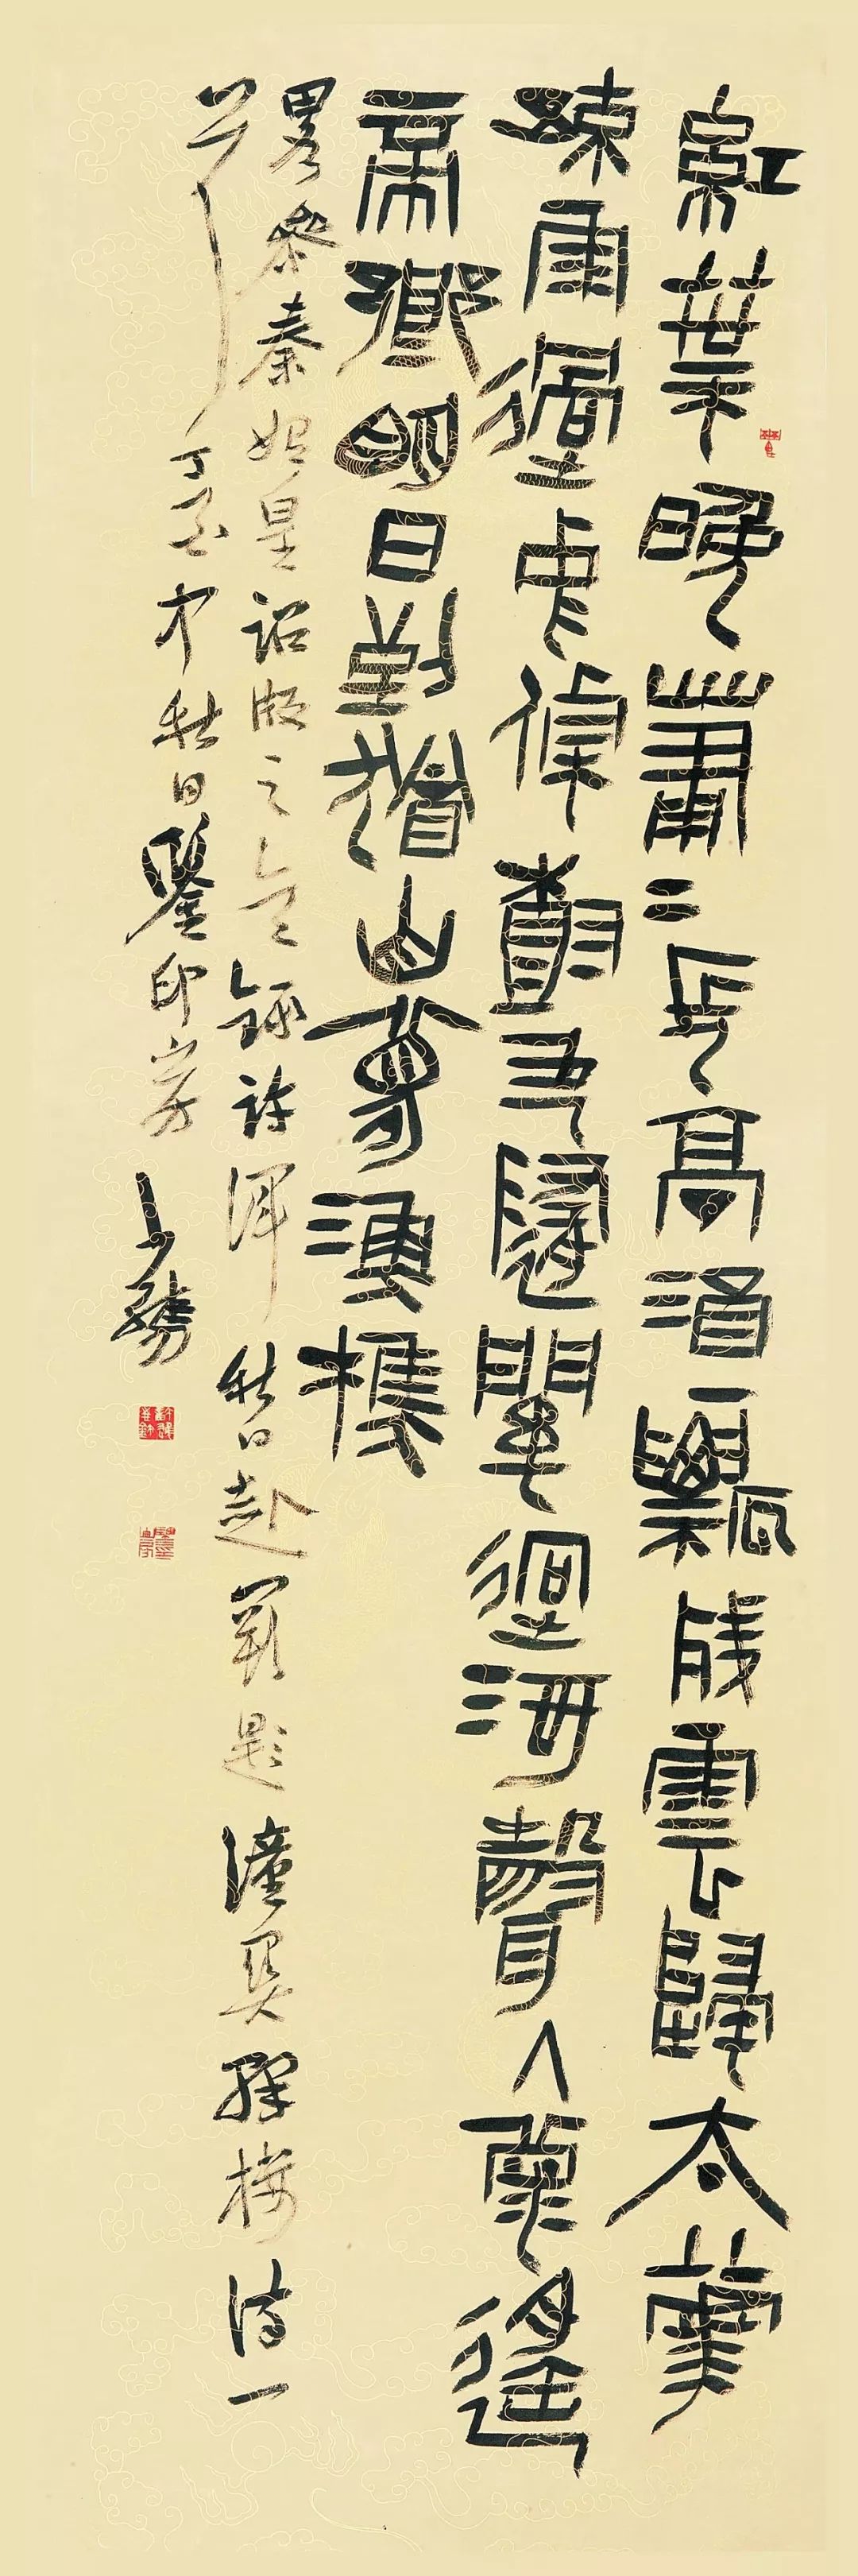 紅葉晚蕭〻長亭酒一瓢殘雲歸太華
疎雨過中條樹色隨關迥河聲入海遙
帝鄉明日到猶自夢漁樵
略參秦始皇詔版之意錄許渾秋日赴闕題潼關驛樓詩一
首丁亥中秋日鑒印山房